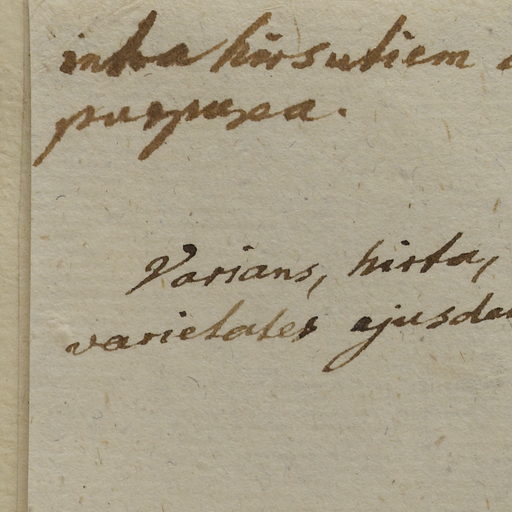 intra hirsutiem
purpurea.
Varians, hirta,
varietates ejusdem